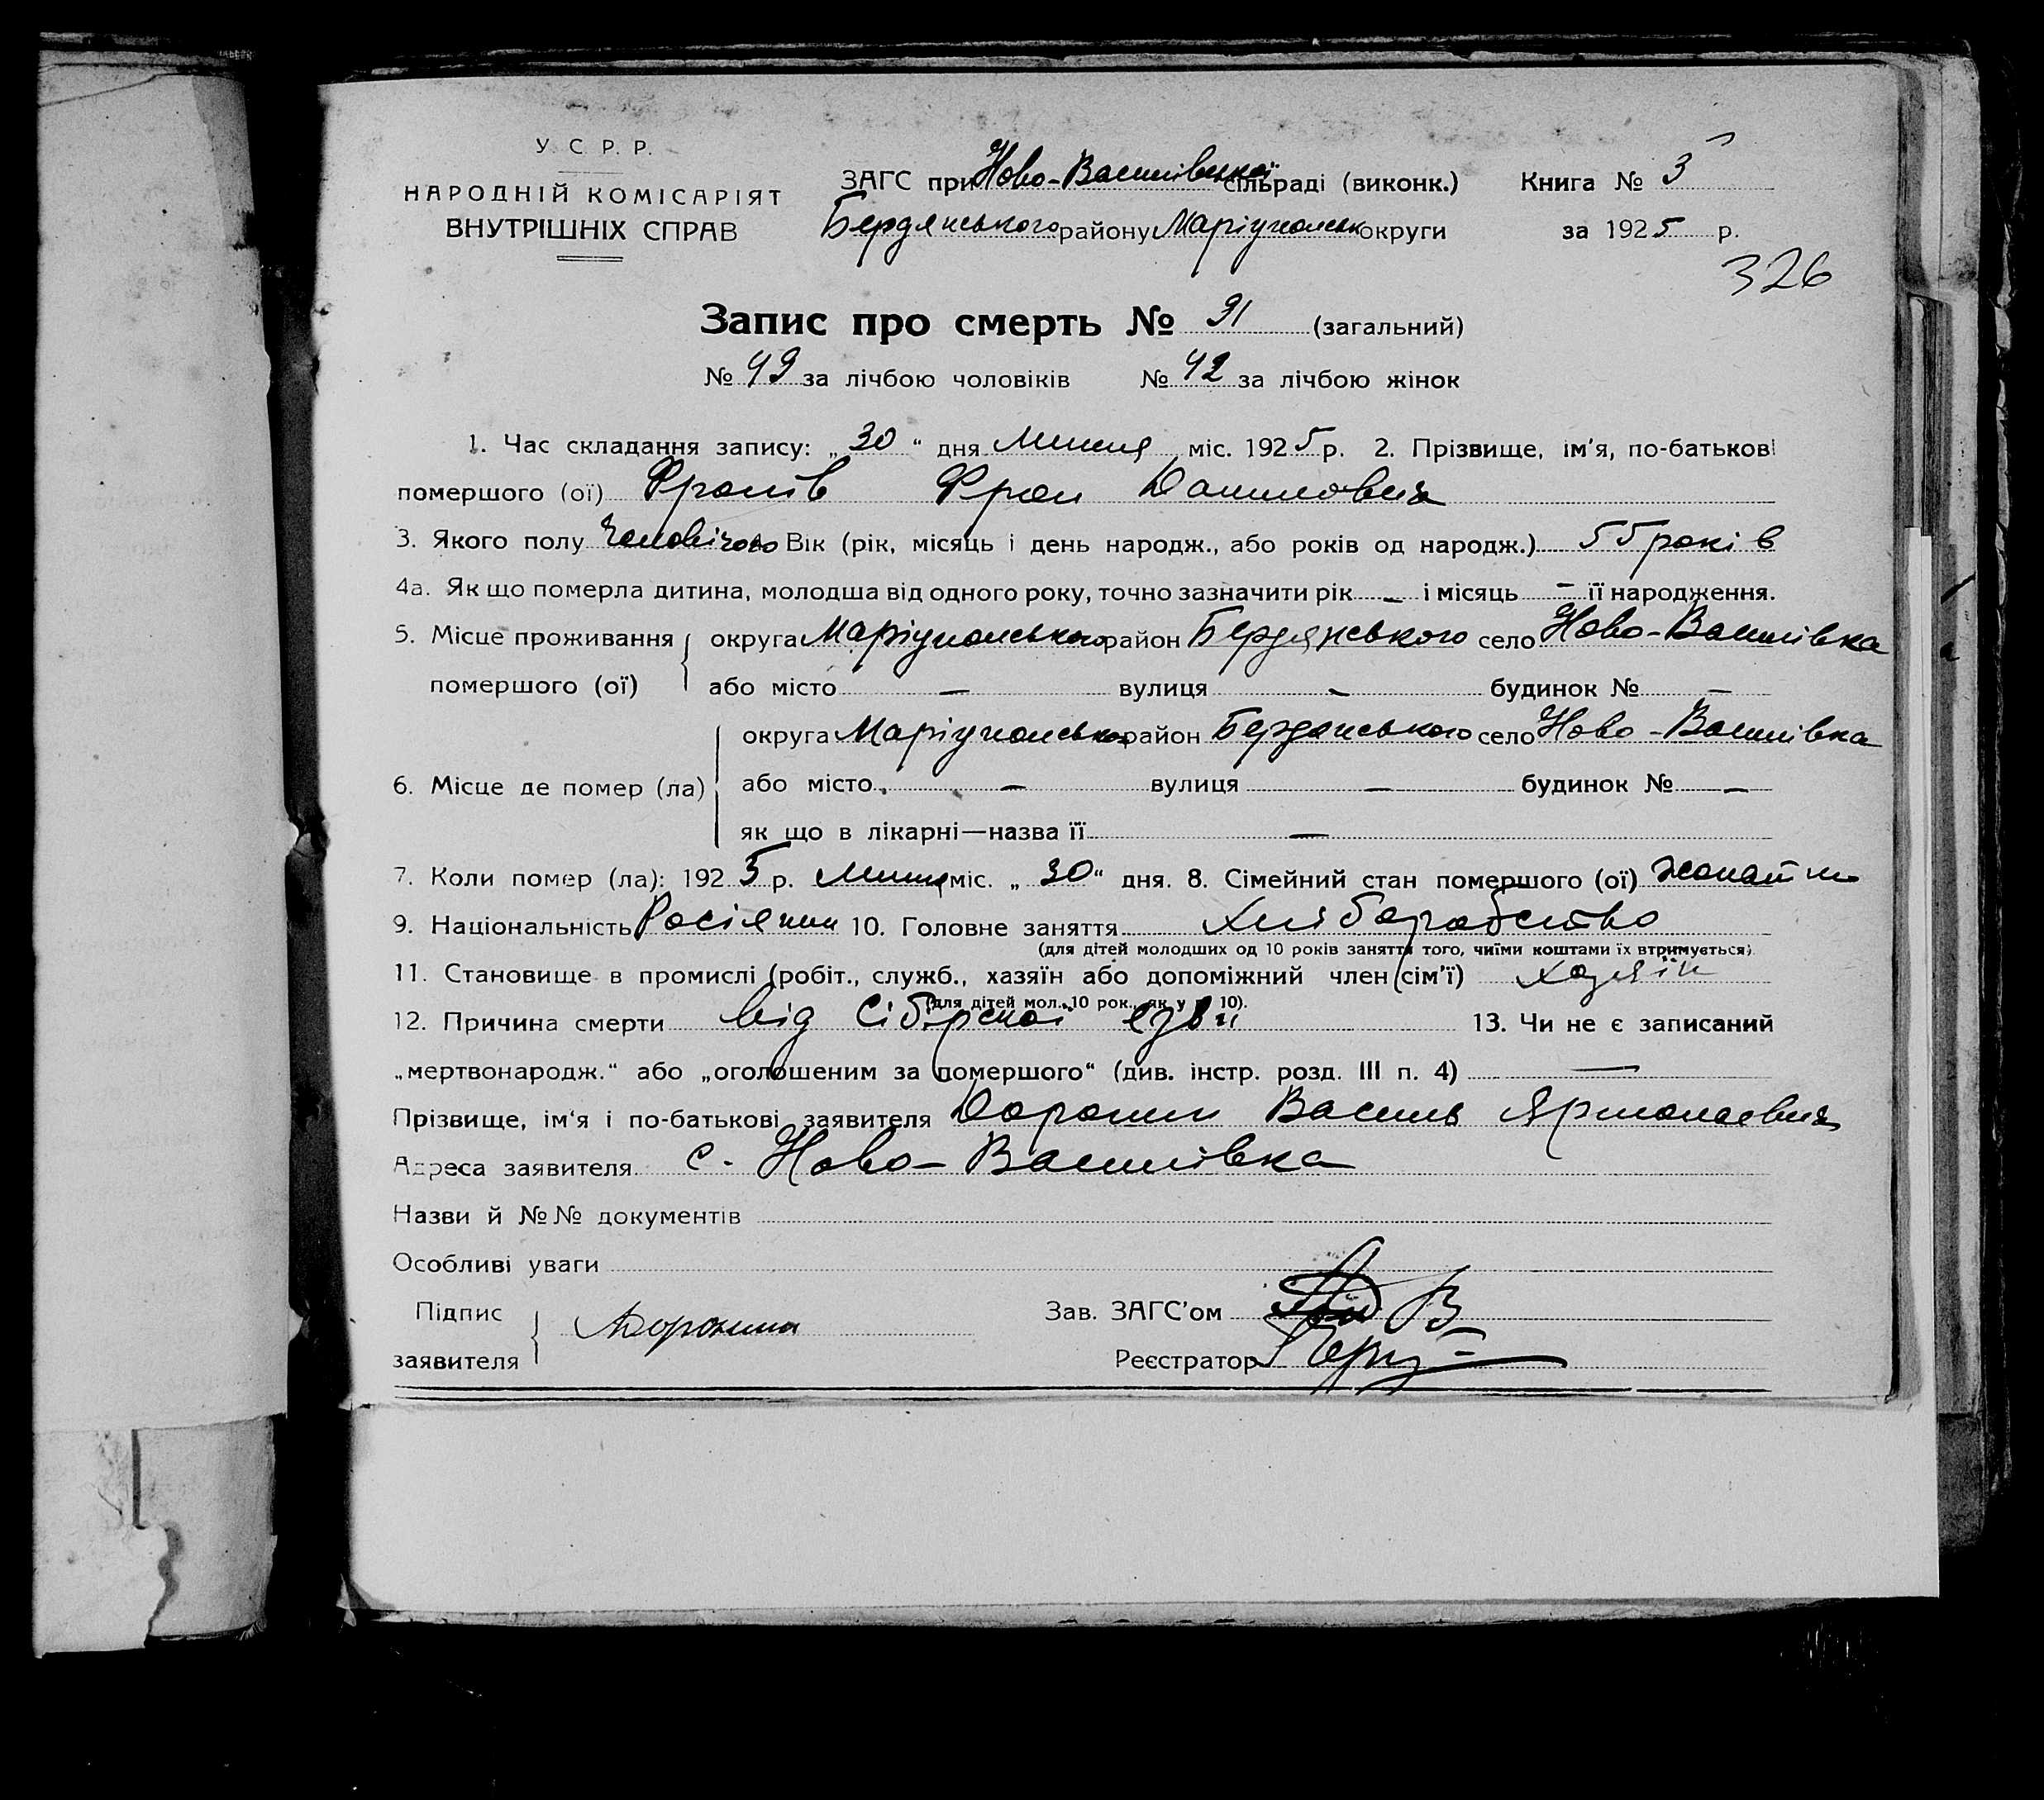 У. С. Р. Р.
НАРОДНІЙ КОМІСАРІЯТ
ВНУТРІШНІХ СПРАВ
ЗАГС при Ново-Василівської сільраді (виконк.)
Бердянського району Маріупольськ округи
Книга № 3
за 1925 р.
326
Запис про смерть № 91 (загальний)
№ 49 за лічбою чоловіків № 42 за лічбою жінок
1. Час складання запису: „30“ дня Липня міс. 1925 р. 2. Прізвище, ім'я, по-батькові
помершого (ої) Фролів Фрол Данилович
3. Якого полу Чоловічого Вік (рік, місяць і день народж., або років од народж.) 55 років
4а. Як що померла дитина, молодша від одного року, точно зазначити рік — і місяць — її народження.
5. Місце проживання округа Маріупольського район Бердянського село Ново-Василівка
помершого (ої) або місто — вулиця — будинок № —
округа Маріупольського район Бердянського село Ново-Василівка
6. Місце де помер (ла) або місто — вулиця — будинок № —
як що в лікарні—назва її —
7. Коли помер (ла): 1925 р. Липня міс. „30“ дня. 8. Сімейний стан помершого (ої)
9. Національність Росіянин 10. Головне заняття Хліборобство
(для дітей молодших од 10 років заняття того, чиїми коштами їх втримується).
11. Становище в промислі (робіт., служб., хазяїн або допоміжний член сім'ї) хазяїн
(для дітей мол. 10 рок., як у п. 10).
12. Причина смерти від Сібірської язви 13. Чи не є записаний
„мертвонародж.“ або „оголошеним за помершого“ (див. інстр. розд. III п. 4) —
Прізвище, ім'я і по-батькові заявителя Доронин Василь Ярмолаевич
Адреса заявителя с. Ново-Василівка
Назви й №№ документів
Особливі уваги
Підпис
заявителя Доронин
Зав. ЗАГС'ом
Реєстратор